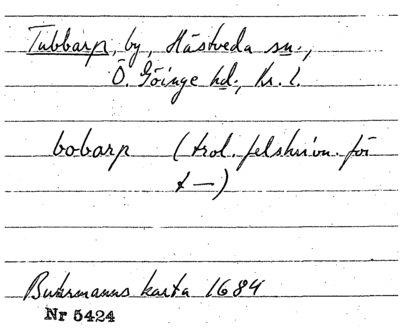 Tubbarp, by, Hästveda sn.,
Ö. Göinge hd., Kr. l.
bobarp (trol. felskrivn. för
t —)
Buhrmanns karta 1684
Nr 5424